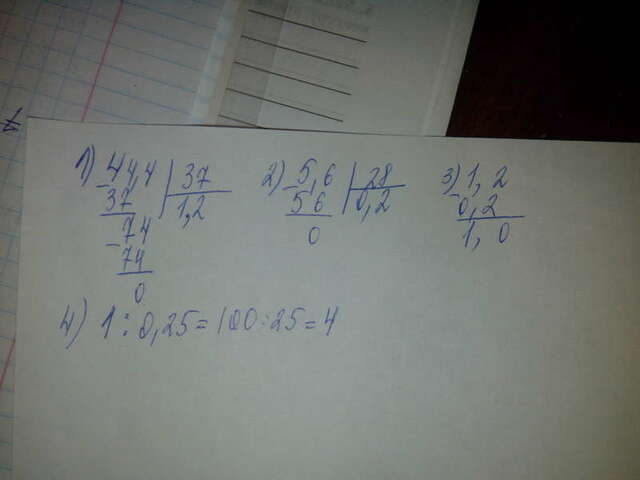 1) 44,4 | 37 2) 5,6 | 28 3) 1,2
- 37 1,2 - 56 0,2 - 0,2
- 74 0 1,0
74
0
4) 1 : 0,25 = 100 : 25 = 4